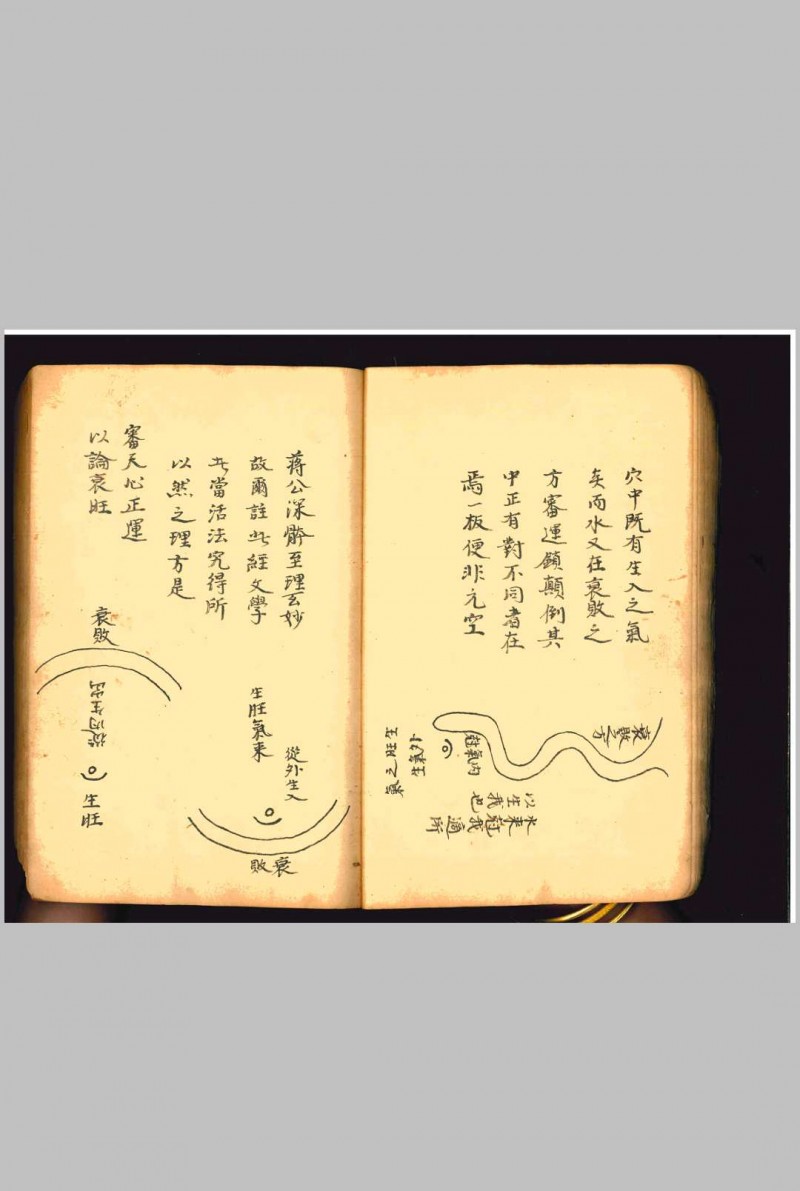 穴中既有生入之氣
矣而水又在衰敗之
方審運顛顛倒其
中正有對不同者在
焉一板便非元空
衰敗之方
尅氣內
外氣生
生旺之氣
水來尅我適所
以生我也
蔣公深
至理玄妙
故爾註此經文學
此當活法究得所
以然之理方是
審天心正運
以論衰旺
從外生入
生旺氣來
衰敗
衰敗
從內生出
生旺